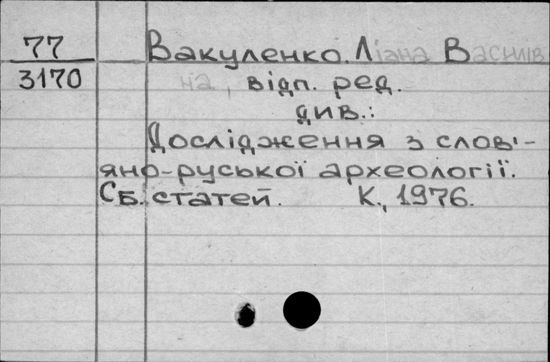 77
3170
Вакуленко. Ліана Василів
на, відп. ред.
див.:
Дослідження з слов'-
яно-руської археології.
Сб. статей. К., 1976.